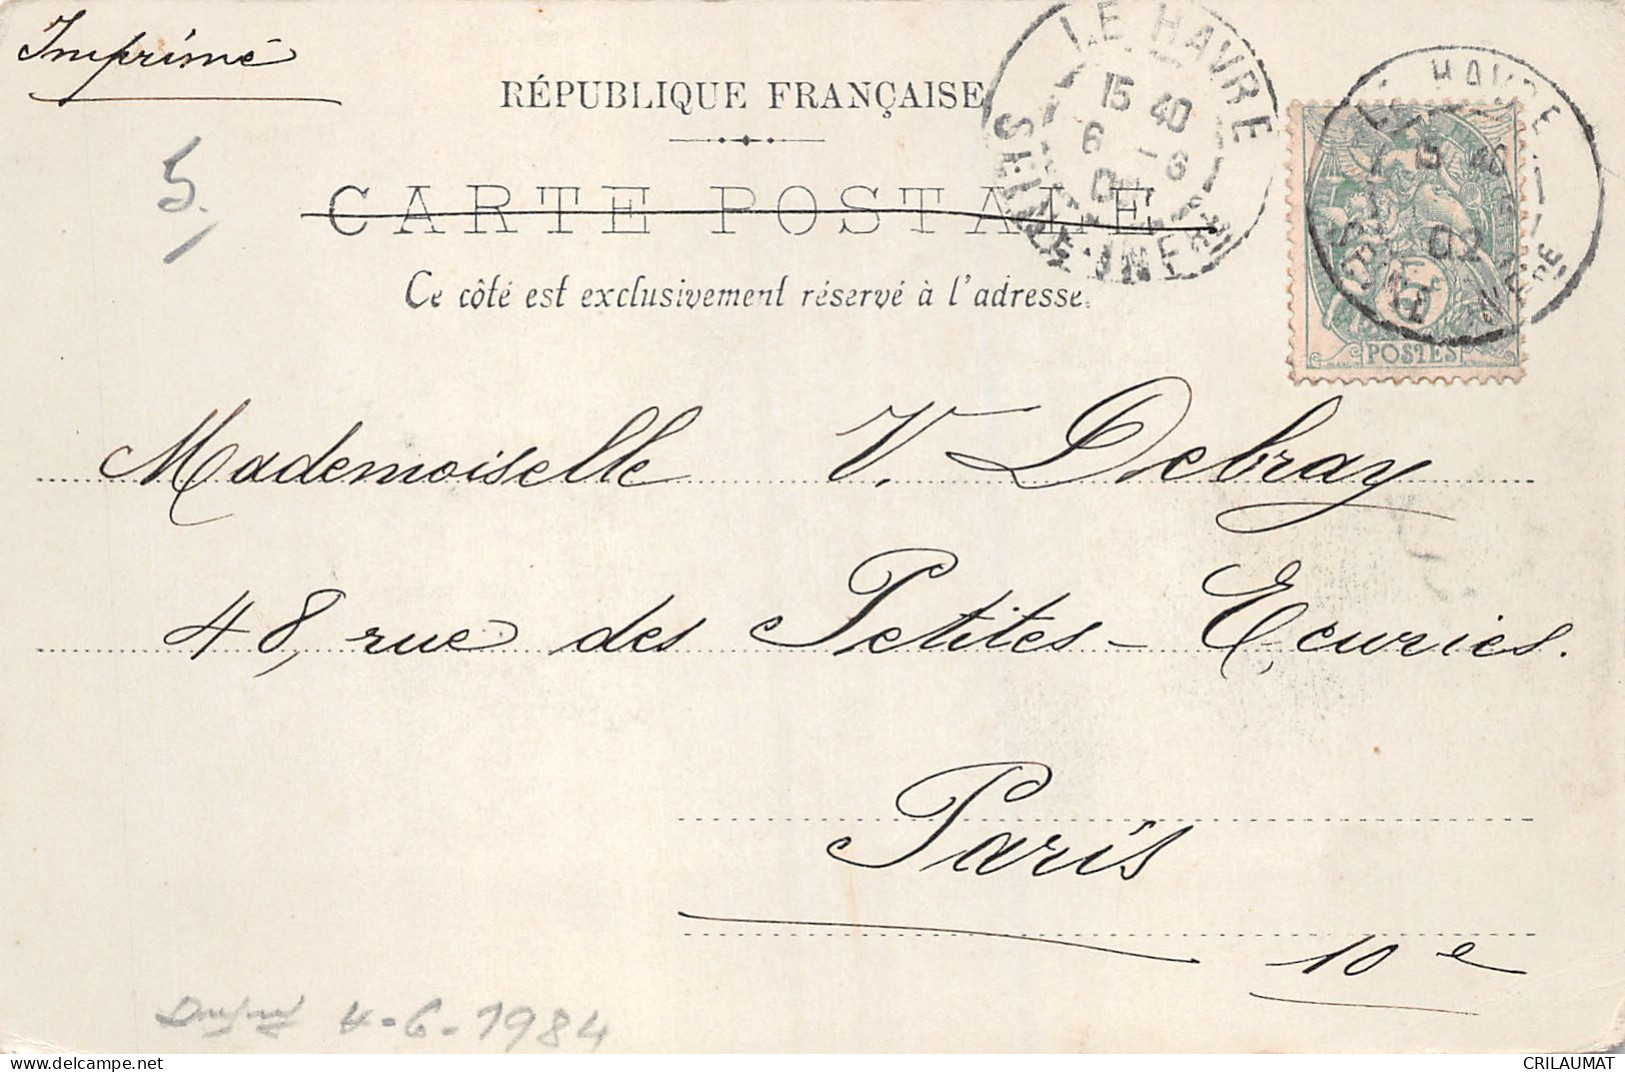 Imprimé
RÉPUBLIQUE FRANÇAISE
5.
CARTE POSTALE
Ce côté est exclusivement réservé à l'adresse.
LE HAVRE
15 40
6 - 6
SEINE-INFRE
LE HAVRE
15 40
02
POSTES
Mademoiselle V. Debray
48, rue des Petites-Ecuries.
Paris
10e
4-6-1984
CRILAUMAT